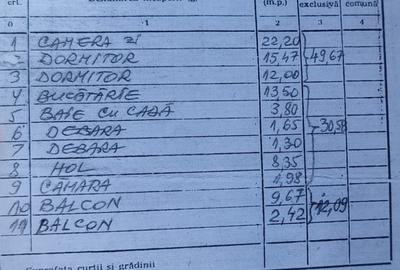 crt. Denumirea încăperii (m.p.) exclusivă comună
0 1 2 3 4
1 CAMERA zi 22,20
2 DORMITOR 15,47 49,67
3 DORMITOR 12,00
4 BUCĂTĂRIE 13,50
5 BAIE CU CADĂ 3,80
6 DEBARA 1,65 30,58
7 DEBARA 1,30
8 HOL 8,35
9 CAMARA 1,98
10 BALCON 9,67 12,09
11 BALCON 2,42
Suprafața curții și grădinii